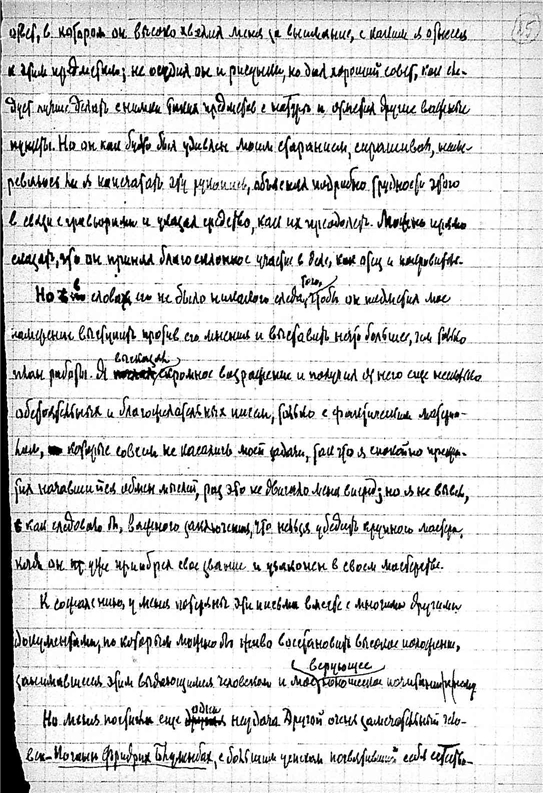 15
ответ, в котором он высоко хвалил меня за внимание, с каким я отнесся
к этим предметам; не осудил он и рисунки, но дал хороший совет, как сле-
дует лучше делать снимки таких предметов с натуры и отметил другие важные
пункты. Но он как будто был удивлен моим старанием, спрашивал, наме-
реваюсь ли я напечатать эту рукопись, объяснял подробно трудности этого
в связи с гравюрами и указал средство, как их преодолеть. Можно прямо
сказать, что он принял благосклонное участие в деле, как отец и покровитель.
Но в словах его не было никакого следа того, чтобы он подметил мое
намерение выступить против его мнения и выставить нечто большее, чем только
план работы. Я высказал скромное возражение и получил от него еще несколько
обстоятельных и благожелательных писем, только с фактическим материа-
лом, которые совсем не касались моей задачи, так что я спокойно прекра-
тил начавшийся обмен мыслей, раз это не двигало меня вперед; но я не вывел,
как следовало бы, важного заключения, что нельзя убедить крупного мастера,
когда он уже приобрел свое звание и узаконен в своем мастерстве.
К сожалению, у меня потеряны эти письма вместе с многими другими
документами, по которым можно бы живо восстановить высокое положение,
занимавшееся этим выдающимся человеком и мое верующее почитание
Но меня постигла еще одна неудача. Другой очень замечательный чело-
век - Иоганн Фридрих Блуменбах, с большим успехом посвятивший себя естество-